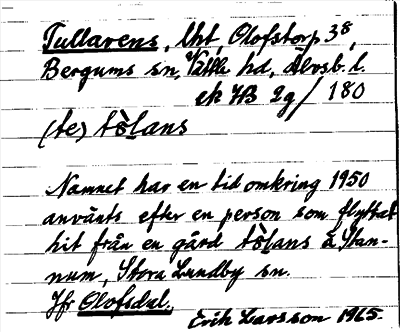 Tullarens, lht, Olofstorp 3⁸,
Bergums sn, Vättle hd, Älvsb. l.
ek HB 2g / 180
(te) tòlans
Namnet har en tid omkring 1950
använts efter en person som flyttat
hit från en gård tòlans å Stan-
num, Stora Lundby sn.
Jfr Olofsdal.
Erik Larsson 1965.